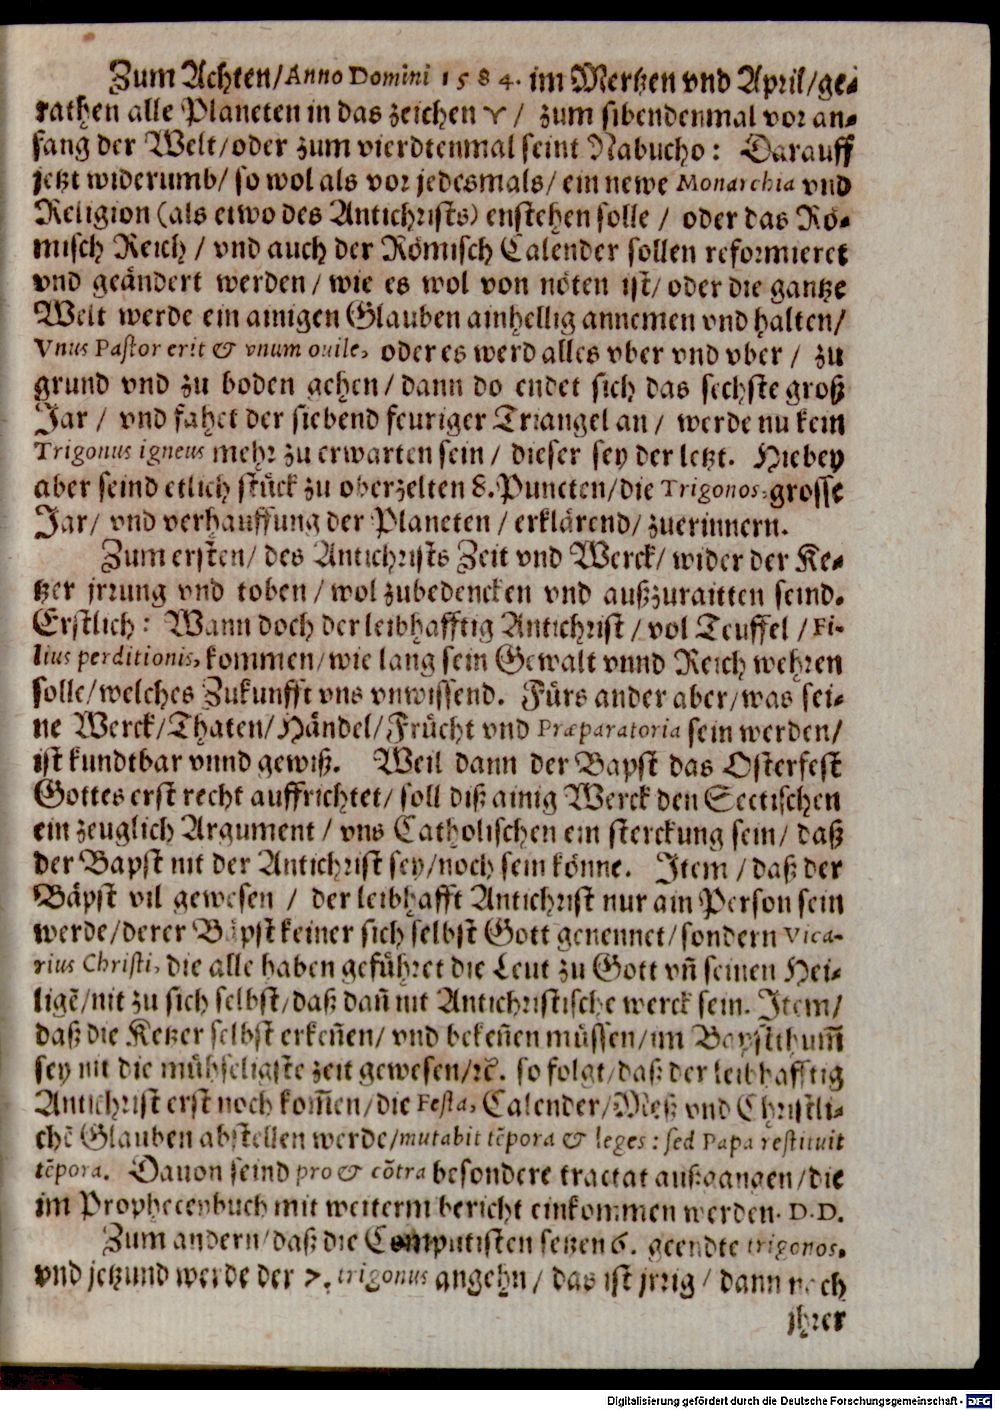 Zum Achten/Anno Domini 1584. im Mertzen vnd April/ge-
rathen alle Planeten in das zeichen ♈/ zum sibendenmal vor an-
fang der Welt/oder zum vierdtenmal seint Nabucho: Darauff
jetzt widerumb/ so wol als vor jedesmals/ ein newe Monarchia vnd
Religion (als etwo des Antichrists) enstehen solle / oder das Rö-
misch Reich / vnd auch der Römisch Calender sollen reformieret
vnd geändert werden/ wie es wol von nöten ist/ oder die gantze
Welt werde ein ainigen Glauben ainhellig annemen vnd halten/
Vnus Pastor erit & vnum ouile, oder es werd alles vber vnd vber / zu
grund vnd zu boden gehen/ dann do endet sich das sechste groß
Jar / vnd fahet der siebend feuriger Triangel an / werde nu kein
Trigonus igneus mehr zu erwarten sein / dieser sey der letzt. Hiebey
aber seind etlich stück zu oberzelten 8. Puncten/die Trigonos, grosse
Jar/ vnd verhauffung der Planeten / erklärend/ zuerinnern.
Zum ersten/ des Antichrists Zeit vnd Werck/ wider der Ke-
tzer jrrung vnd toben / wol zubedencken vnd außzuraitten seind.
Erstlich: Wann doch der leibhafftig Antichrist / vol Teuffel / Fi-
lius perditionis, kommen/wie lang sein Gewalt vnnd Reich wehren
solle/welches Zukunfft vns vnwissend. Fürs ander aber/was sei-
ne Werck/Thaten/Händel/Frücht vnd Præparatoria sein werden/
ist kundtbar vnnd gewiß. Weil dann der Bapst das Osterfest
Gottes erst recht auffrichtet/ soll diß ainig Werck den Sectischen
ein zeuglich Argument / vns Catholischen ein sterckung sein/ daß
der Bapst nit der Antichrist sey/noch sein könne. Item / daß der
Bäpst vil gewesen / der leibhafft Antichrist nur ain Person sein
werde/derer Bäpst keiner sich selbst Gott genennet/sondern Vica-
rius Christi, die alle haben geführet die Leut zu Gott vñ seinen Hei-
ligē/nit zu sich selbst/daß dañ nit Antichristische werck sein. Item/
daß die Ketzer selbst erkeñen/ vnd bekeñen müssen/im Bapstthum̄
sey nit die mühseligste zeit gewesen/ꝛc̄. so folgt/daß der leibhafftig
Antichrist erst noch kom̄en/die Festa, Calender/Meß vnd Christli-
chē Glauben abstellen werde/mutabit tēpora & leges: sed Papa restituit
tēpora. Dauon seind pro & cōtra besondere tractat außgangen/die
im Propheceybuch mit weiterm bericht einkommen werden. D.D.
Zum andern/daß die Computisten setzen 6. geendte trigonos,
vnd jetzund werde der 7. trigonus angehn / das ist jrrig / dann nach
jhrer
Digitalisierung gefördert durch die Deutsche Forschungsgemeinschaft - DFG